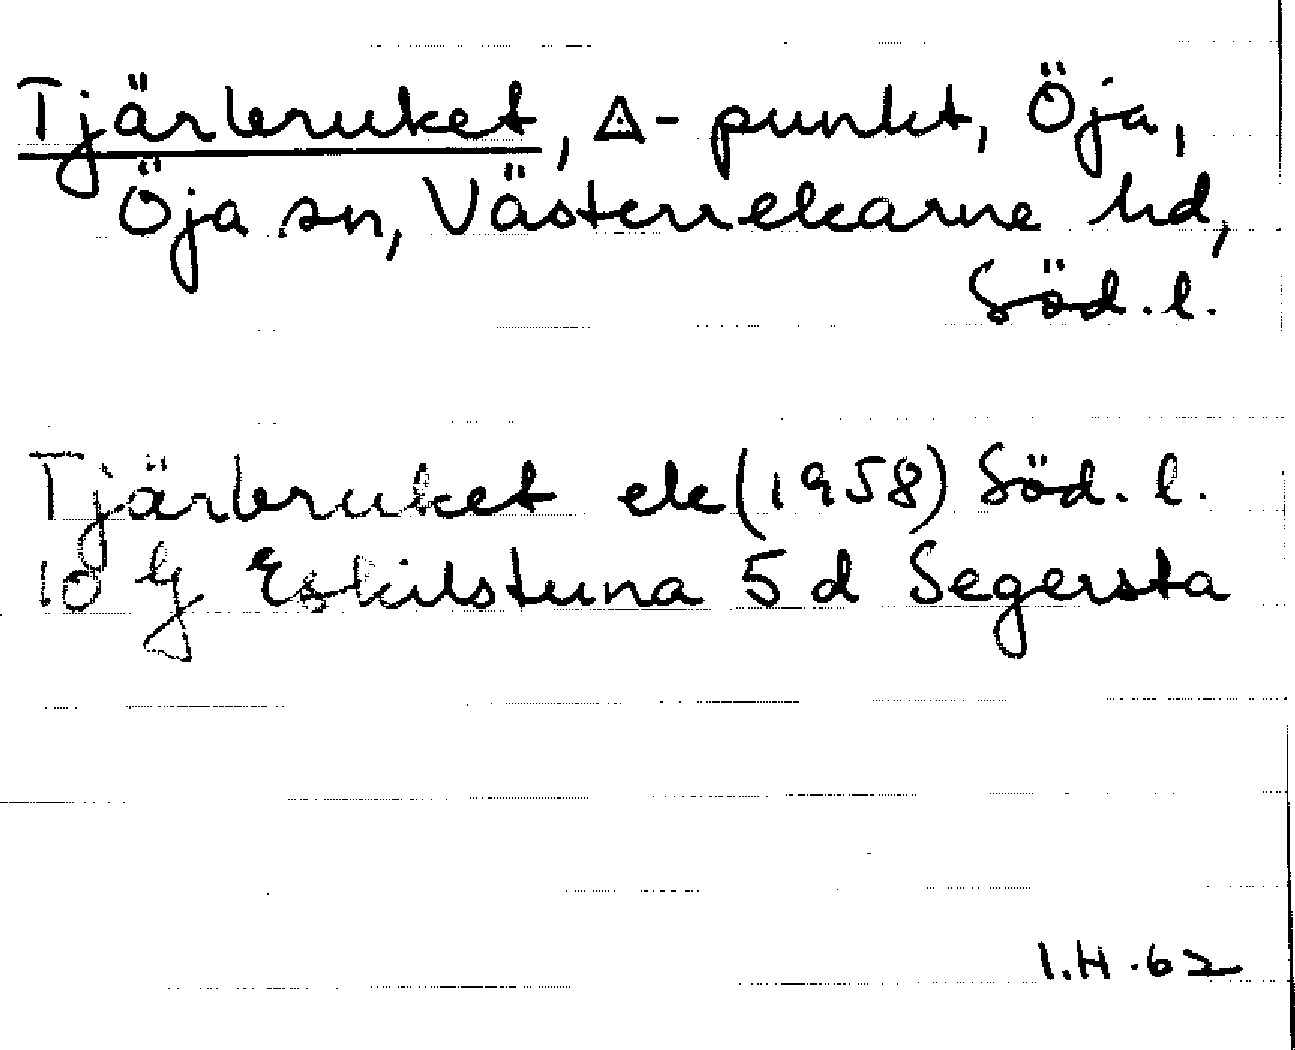 Tjärbruket, △-punkt, Öja,
Öja sn, Västerrekarne hd,
Söd.l.
Tjärbruket ek (1958) Söd.l.
10 G Eskilstuna 5 d Segersta
I.H.62